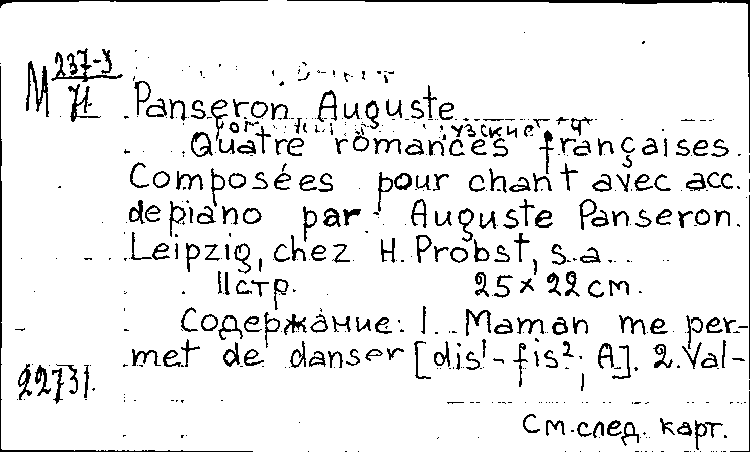 М 237-У
71
Panseron, Auguste
Quatre romances françaises.
Composées pour chant avec acc.
de piano par Auguste Panseron.
Leipzig, chez H. Probst, s.a.
11стр. 25 × 22 см.
Содержание: 1. Maman me per-
met de danser [dis¹-fis²; A]. 2. Val-
22731.
См. след. карт.